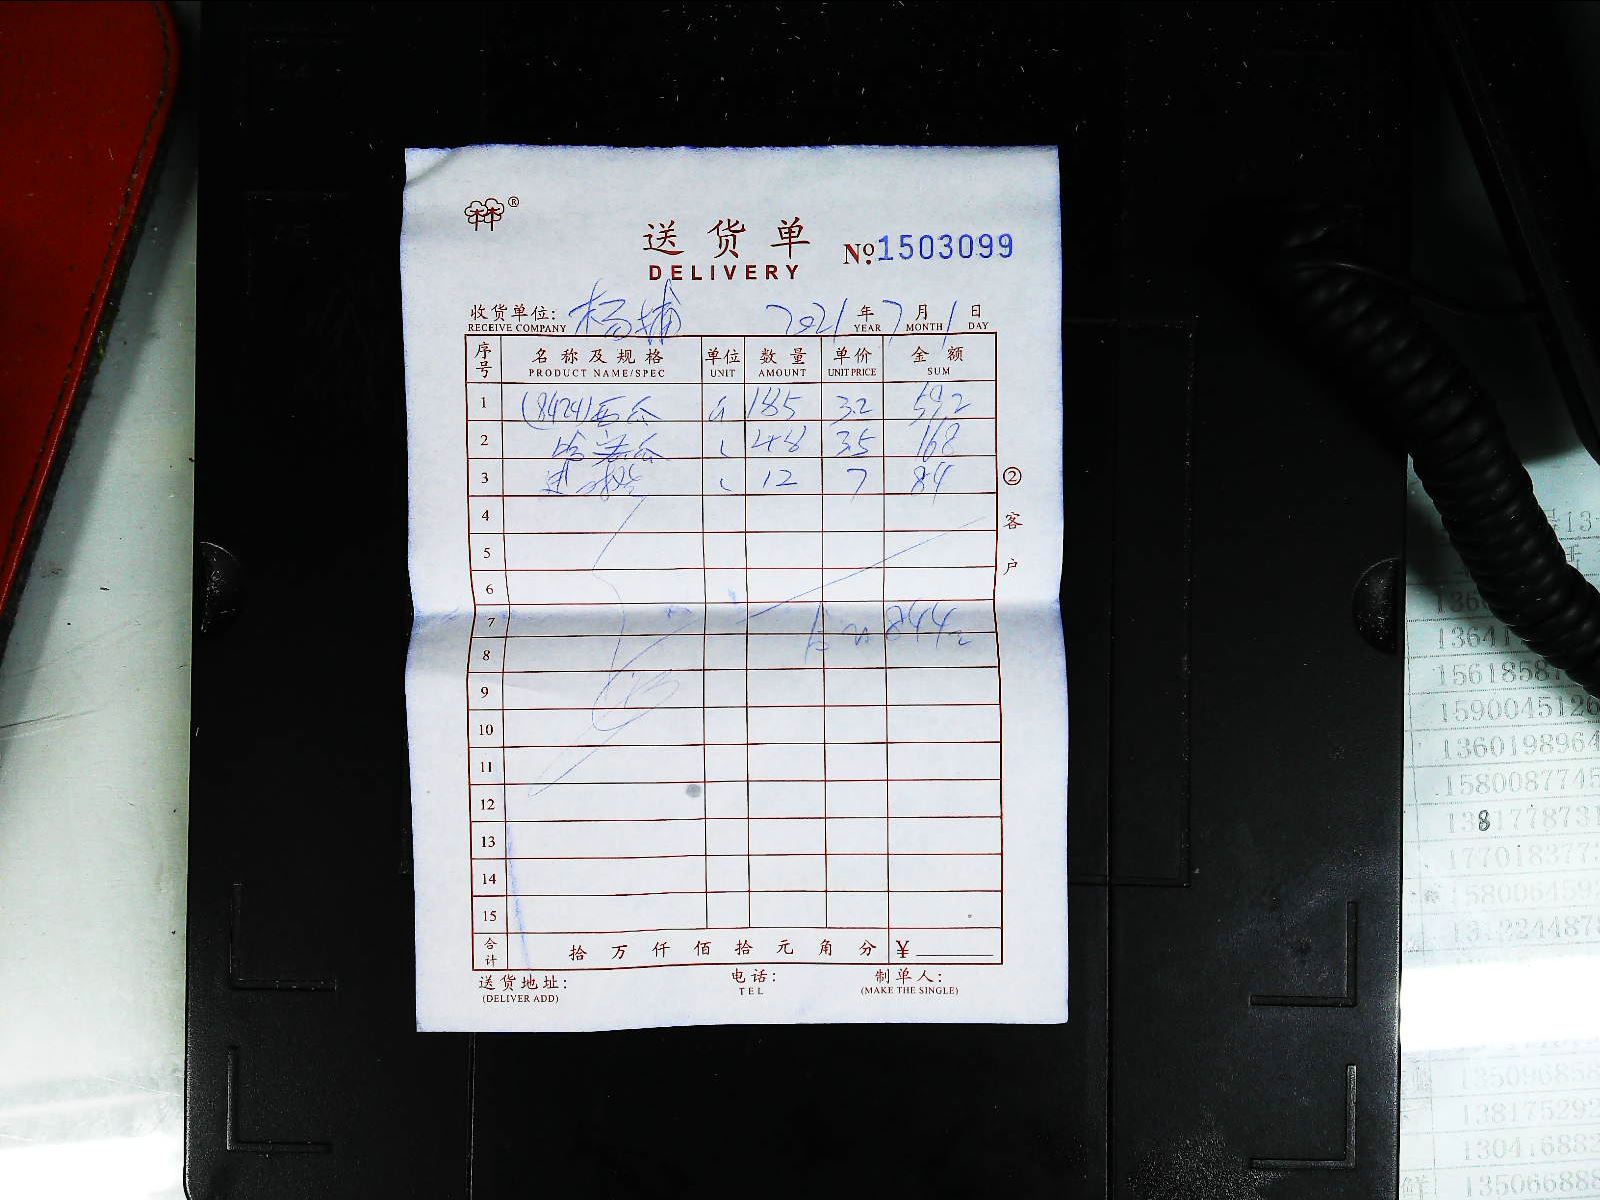 ®
送货单
DELIVERY
№ 1503099
收货单位: 杨埔 2021年7月1日
RECEIVE COMPANY YEAR MONTH DAY
序号 名称及规格 单位 数量 单价 金额
PRODUCT NAME/SPEC UNIT AMOUNT UNIT PRICE SUM
1 (8424)西瓜 斤 185 3.2 592
2 哈密瓜 、 48 3.5 168
3 、 12 7 84
4
5
6
7 844
8
9
10
11
12
13
14
15
合计 拾万仟佰拾元角分 ¥
送货地址: 电话: 制单人:
(DELIVER ADD) TEL (MAKE THE SINGLE)
②客户
1561858
1590045126
1360198964
1580087745
1381778731
177018377
1580064592
135096858
138175292
135066888